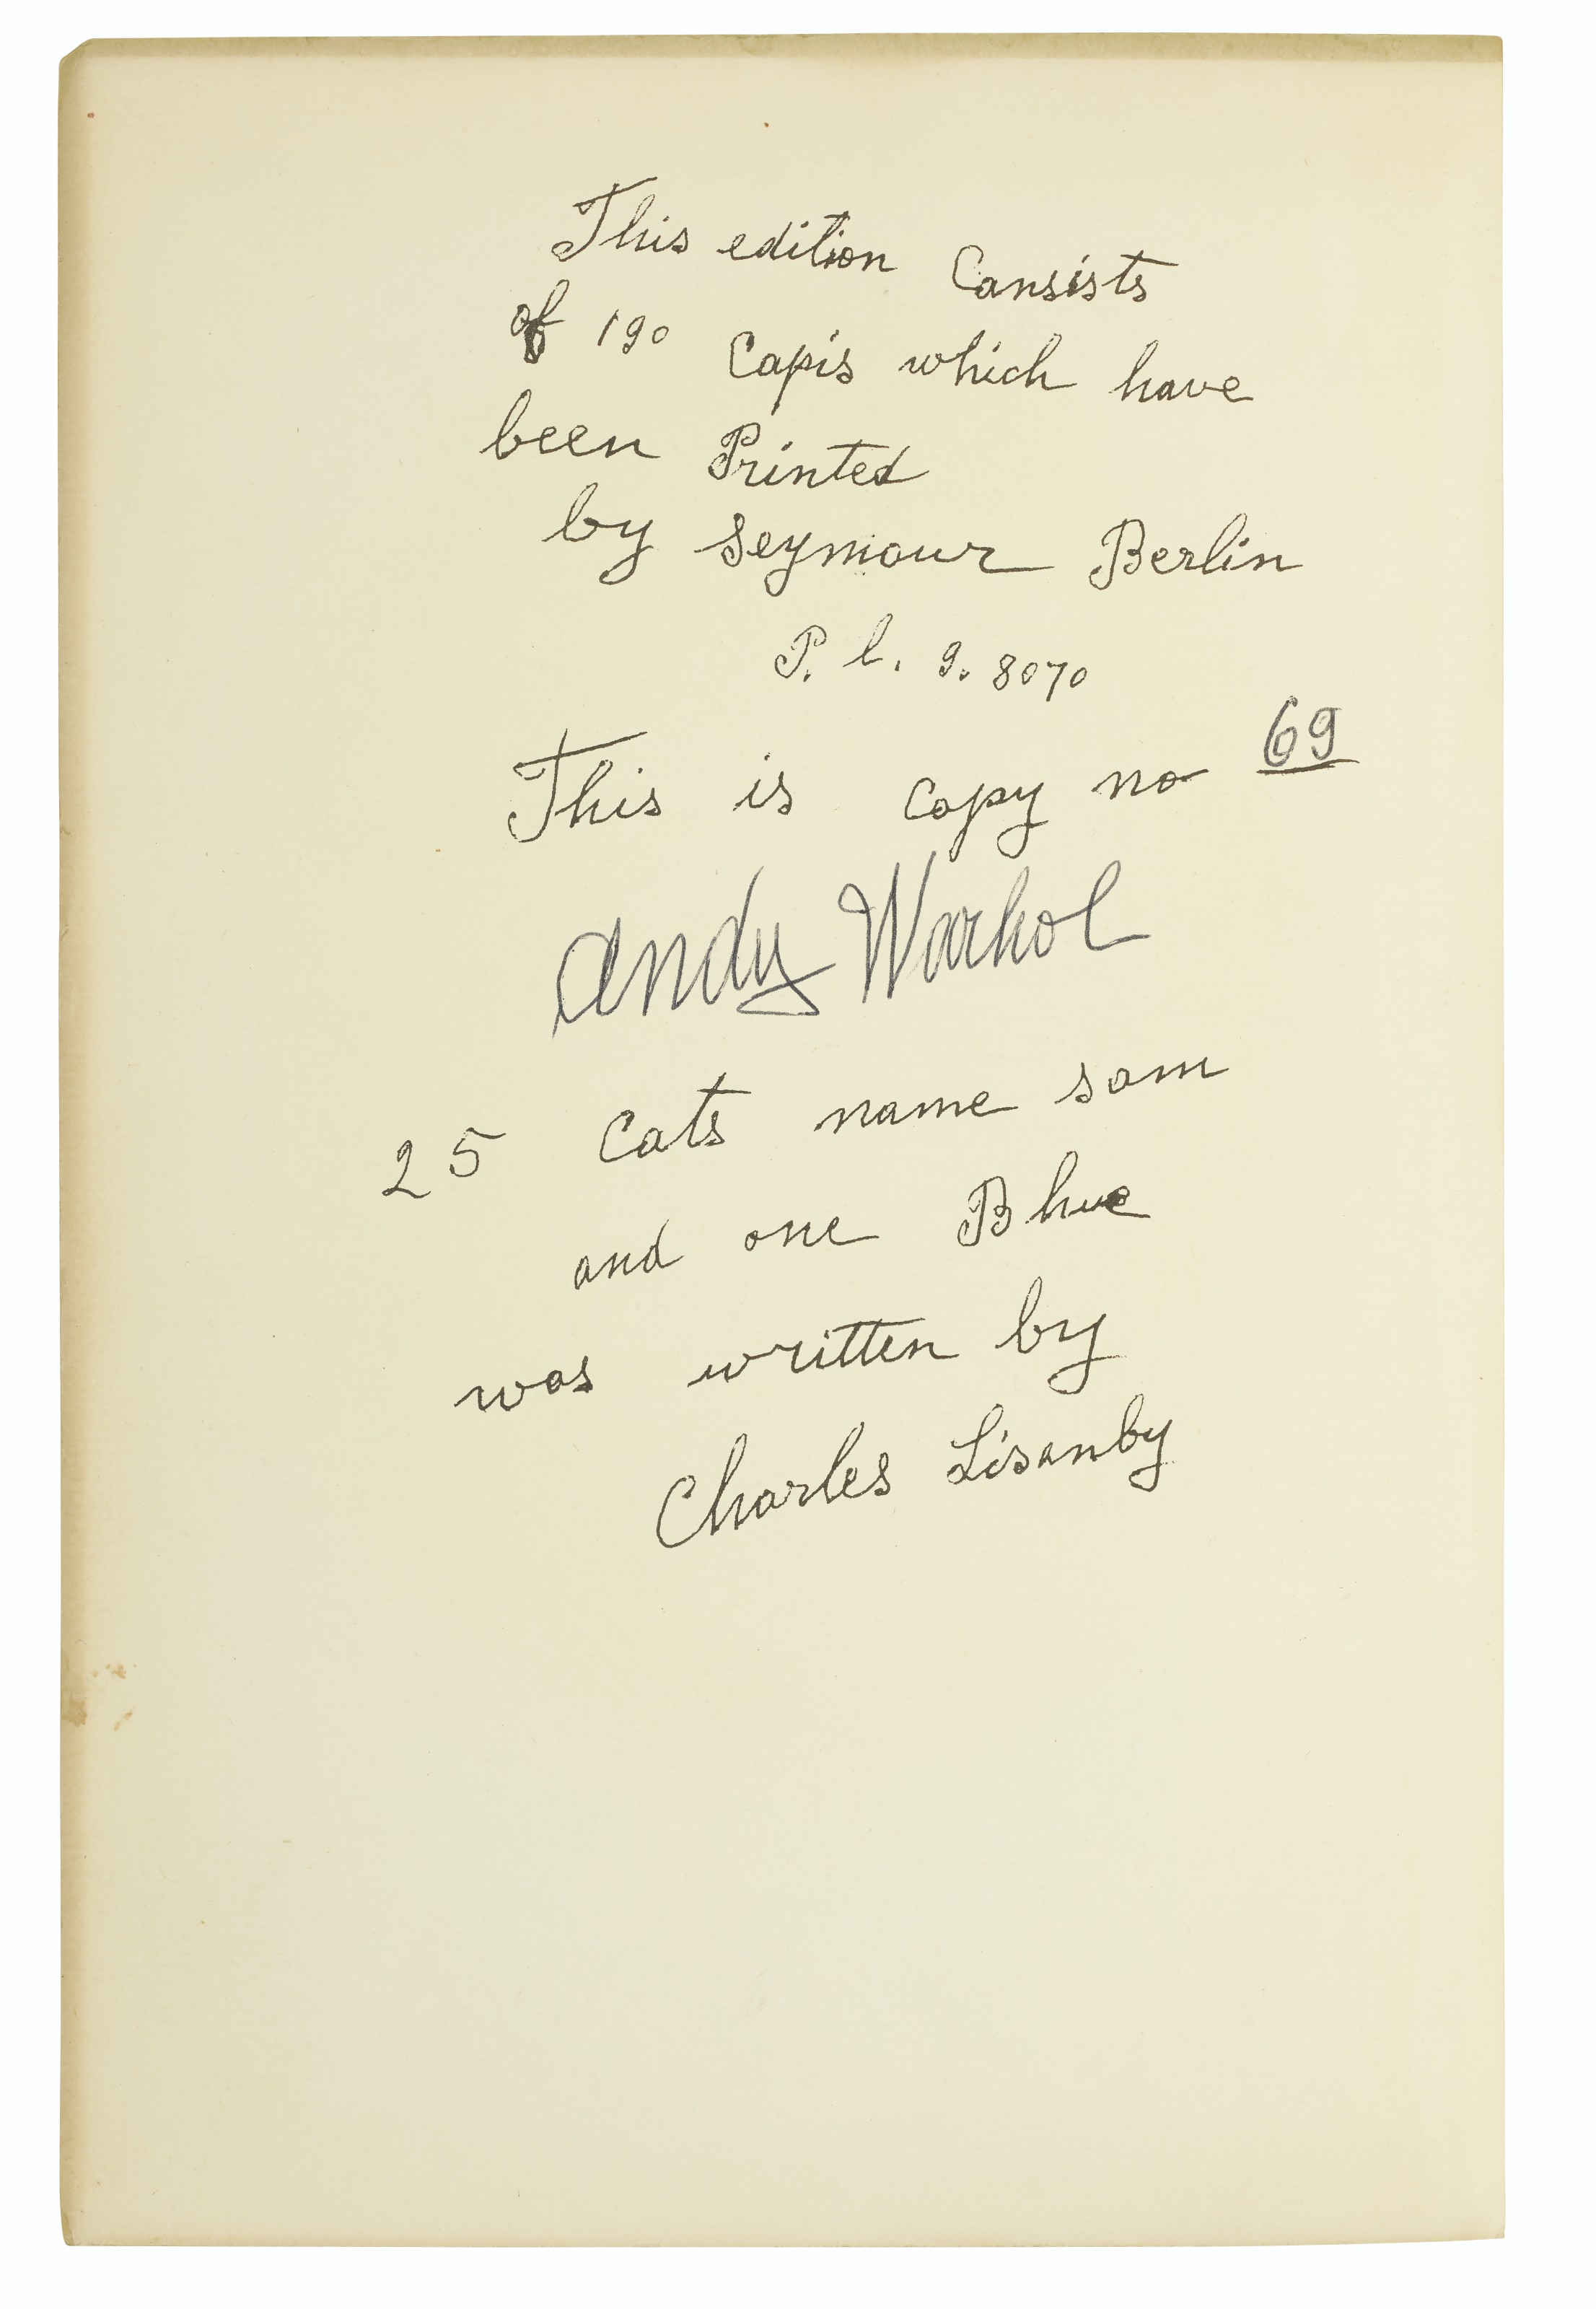 This edition Cansists
of 190 Capis which have
been Printed
by Seymour Berlin
P. l. 9. 8070
This is Copy no 69
Andy Warhol
25 Cats name sam
and one Blue
was written by
Charles Lisanby